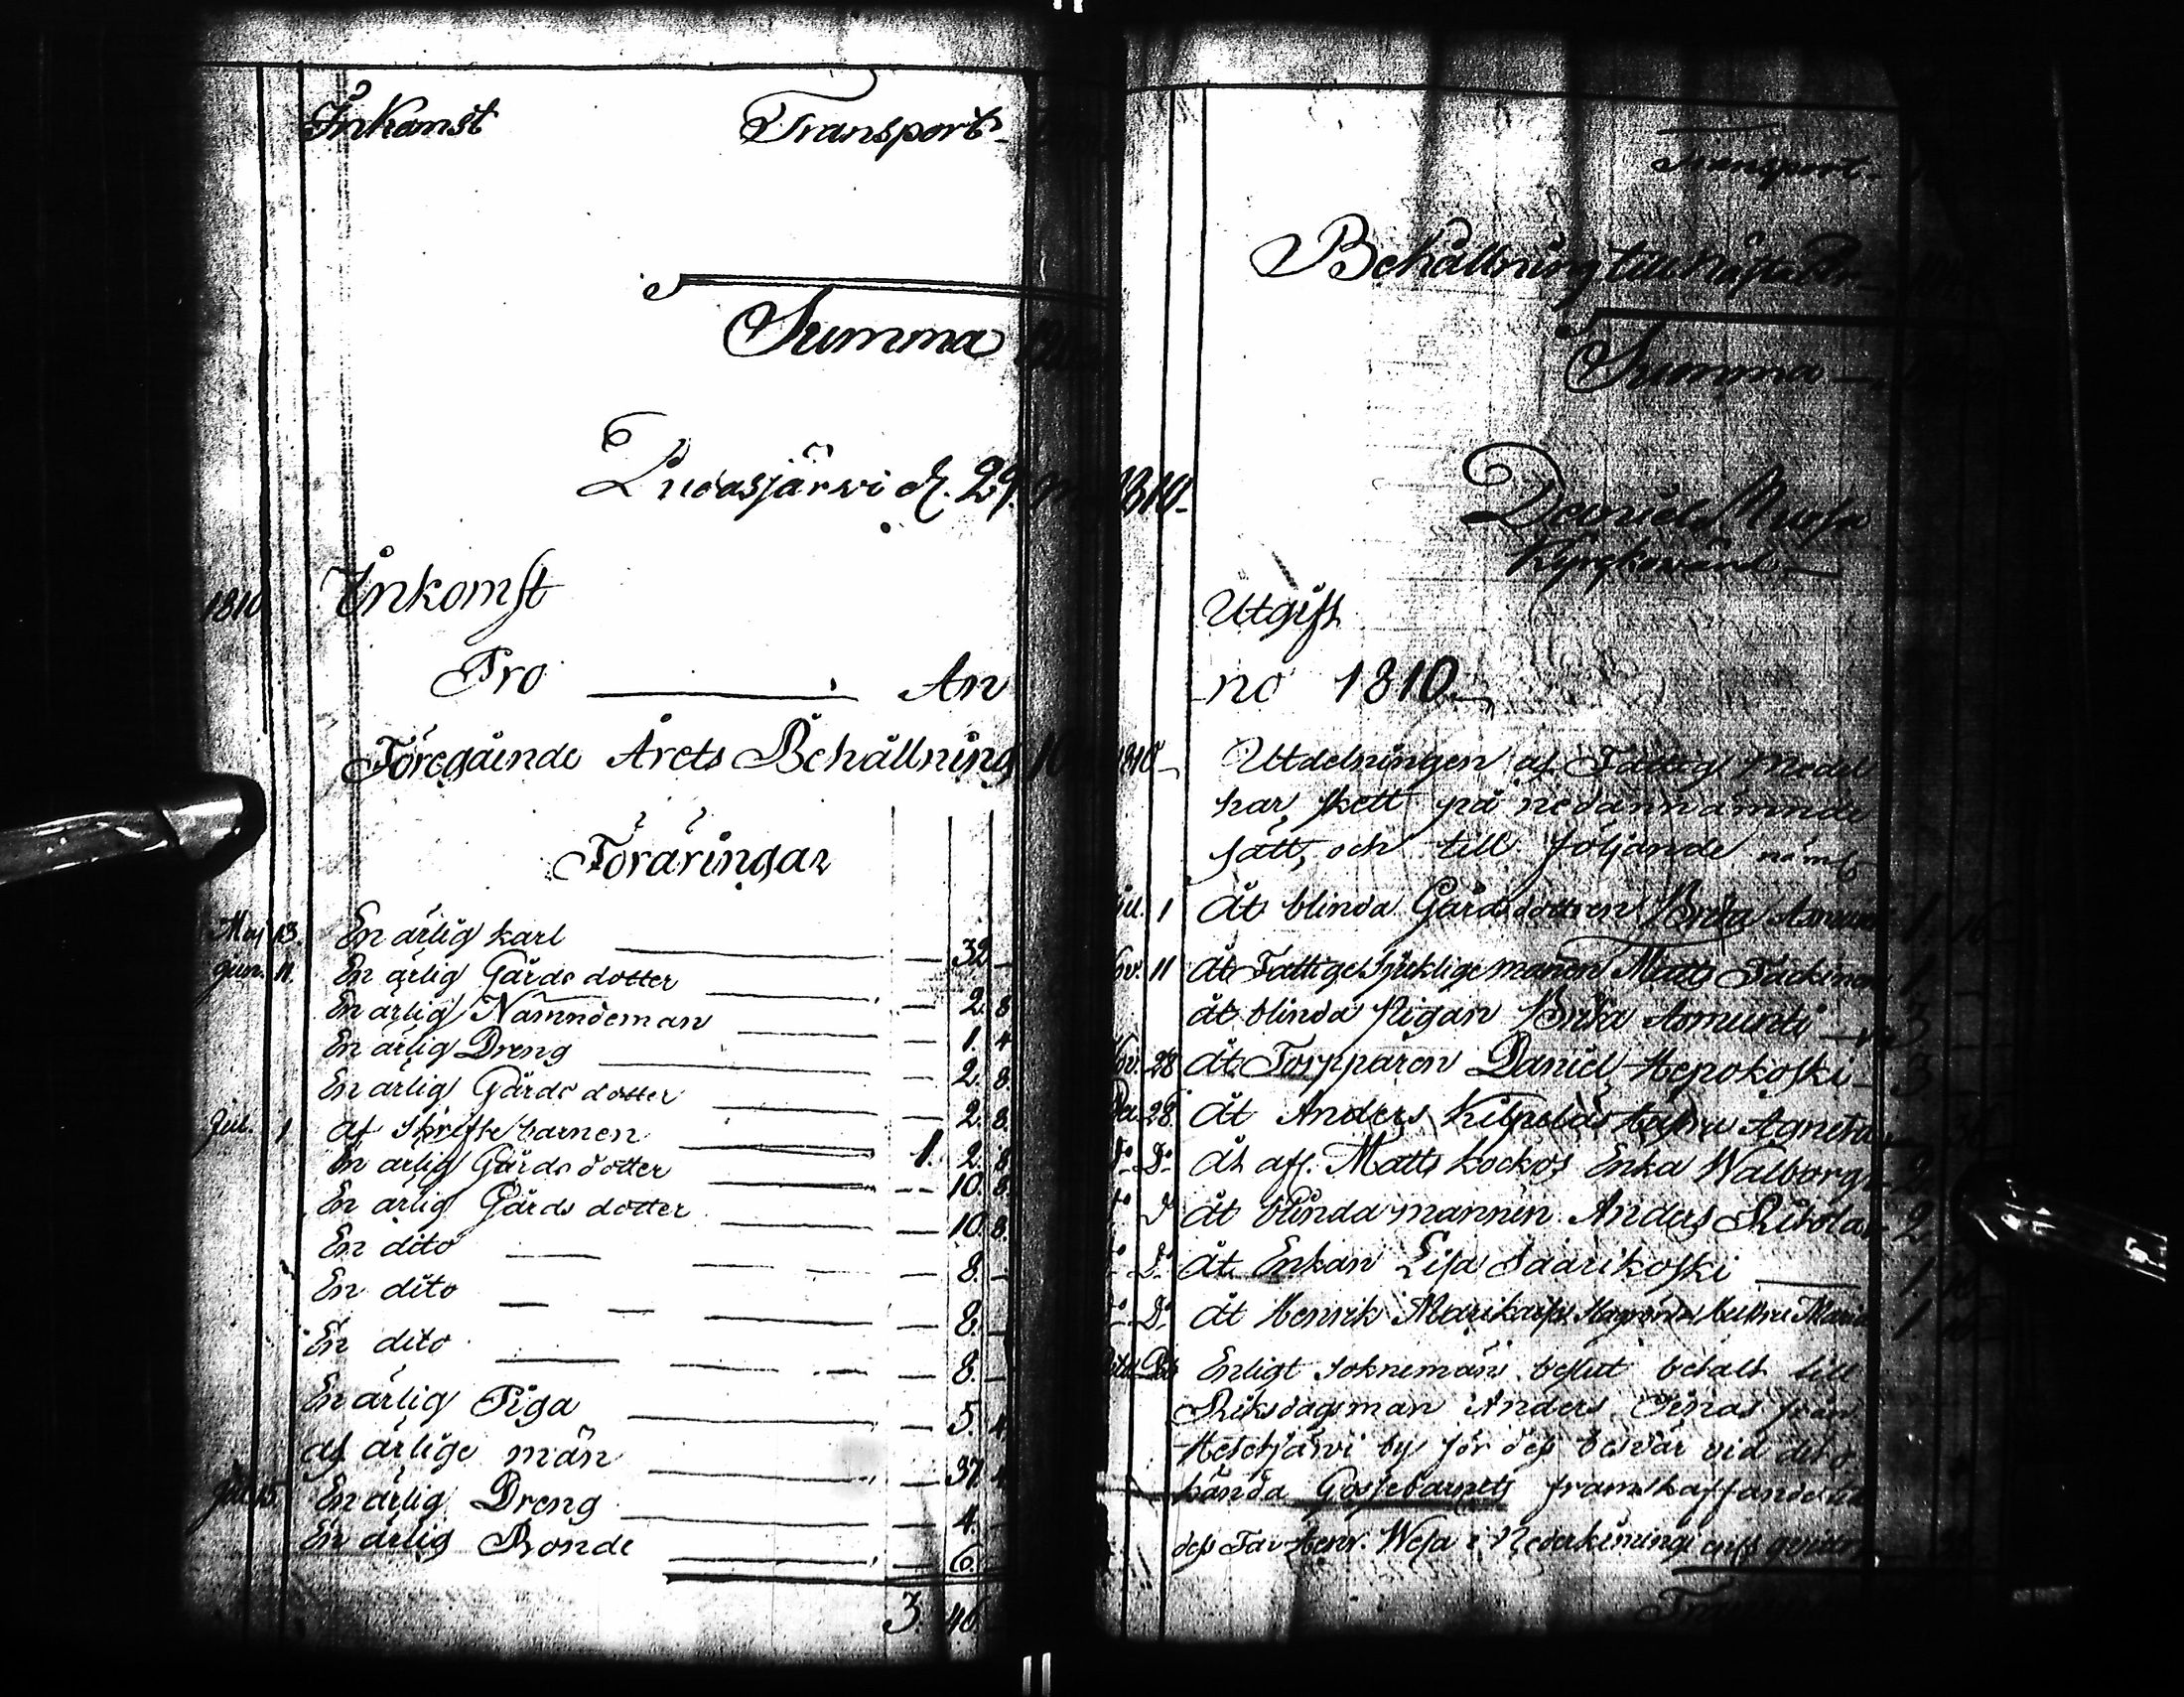 Inkomst Transport
Summa
Pudasjärvi d. 29.
1810 Inkomst
Pro An
Föregående Årets Behållning
Föräringar
Maj 13. En ärlig karl 32 –
Jun. 11. En ärlig Gårds dotter 2. 8
En ärlig Nämndeman 1. 4
En ärlig Dreng 2. 8.
En ärlig Gårds dotter 2. 8.
Jul. 1 af Skriftebarnen 1. 2. 8
En ärlig Gårds dotter 10. 8.
En ärlig Gårds dotter 10. 8.
En dito 8. –
En dito 8. –
En dito 8. –
En ärlig Piga 5. 4
af ärlige män 37 4
Jul. 15 En ärlig Dreng 4. –
En ärlig Bonde 6.
3. 46
Transport
Behållning till nästa År
Summa
1810
Daniel
Kyrkovärd
Utgift
no 1810
1810 Utdelningen af Fattig Medel
har skett på nedannämnde
sätt, och till följande näml.
Jul. 1 åt blinda Gårdsdottren Brita 1. 16
11 åt Fattige sjuklige mannen Matts 1.
åt blinda Pigan Brita Asmunti 3
28 åt Torpparen Daniel Hepokoski 3
28 åt Anders hustru Agneta
Do åt afl. Matts Kockos Enka Walborg 2.
åt blinda mannen Anders 2.
Do åt Enkan Lisa Saarikoski 1.
Do åt Henrik hustru Maria 1.
Enligt Soknemäns beslut betalt till
Riksdagsman Anders från
by för dess besvär vid det o-
kända Gossebarnets framskaffande
dess Far Henr. Wesa i